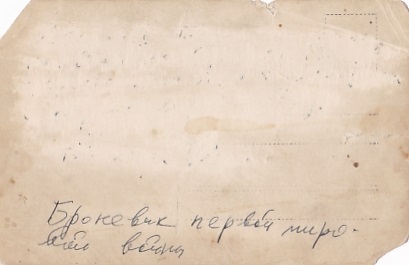 Броневик первой миро-
вой войны